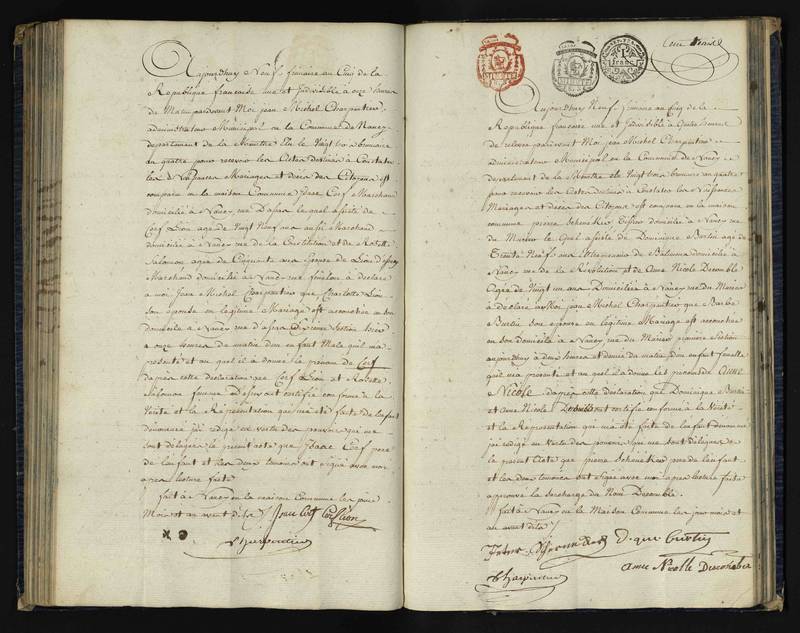 Aujourdhuy Neuf frimaire an Cinq de la
Republique francaise une et Indivisible à onze heures
de Matin pardevant Moi jean Michel Charpentier
administrateur Municipal en la Commune de Nancy
departement de la Meurthe Elu le Vingt trois brumaire
an quatre pour recevoir les Actes destinés à Constater
les Naissances Mariages et décès des Citoyens est
comparu en la maison Commune Isaac Cerf Marchand
domicilié à Nancy rue lequel assisté de
Cerf Lion agé de Vingt Neuf ans aussi Marchand
domicilié à Nancy rue de la Constitution et de Rosette
Salomon agée de Cinquante ans Epouse de Lion
Marchand domiciliée à Nancy rue fénelon à déclaré
a moi Jean Michel Charpentier que Charlotte Lion
son épouse en légitime Mariage est accouchée en son
domicile à Nancy rue Section hier
a onze heures du matin d'un enfant Male quil ma
presenté et au quel il a donné le prénom de Cerf
dapres cette déclaration que Cerf Lion et Rosette
Salomon femme ont certifié conforme à la
Vérité et la Représentation qui ma été faite de lenfant
dénommé jai rédigé en vertu des pouvoirs qui me
sont délégués le présent acte que Isaac Cerf pere
de lenfant et les deux temoins ont signé avec moi
apres lecture faite
fait à Nancy en la maison Commune les jour
Mois et an avant dits / Isaac Cerf Cerf Lion
Charpentier
1 franc
Aujourdhuy Neuf frimaire an Cinq de la
Republique francaise une et Indivisible à quatre heures
de relevée pardevant Moi jean Michel Charpentier
administrateur Municipal en la Commune de Nancy
departement de la Meurthe elu Vingt trois brumaire an quatre
pour recevoir les Actes destinés à Constater les Naissances
Mariages et décès des Citoyens est comparu en la maison
commune pierre domicilié à Nancy rue
du Muséum le quel assisté de Dominique Bertin agé de
Trente Neuf ans domicilié à
Nancy rue de la Révolution et de Anne Nicole
Agée de Vingt un ans Domiciliée à Nancy rue du Muséum
à déclaré a Moi jean Michel Charpentier que Barbe
Bertin son épouse en légitime Mariage est accouchée
en son domicile à Nancy rue du Muséum première Section
aujourdhuy à deux heures et demie du matin d'un enfant femelle
quil ma présenté et au quel il a donné les prénoms de Anne
Nicole dapres cette déclaration que Dominique Bertin
et Anne Nicole ont certifié conforme à la Vérité
et la Représentation qui ma été faite de lenfant dénommé
jai rédigé en vertu des pouvoirs qui me sont délégués
le présent Acte que pierre pere de lenfant
et les deux temoins ont signé avec moi apres lecture faite
approuvé la surcharge du Nom
fait à Nancy en la Maison Commune les jour mois et
an avant dits /
Charpentier
anne Nicolle